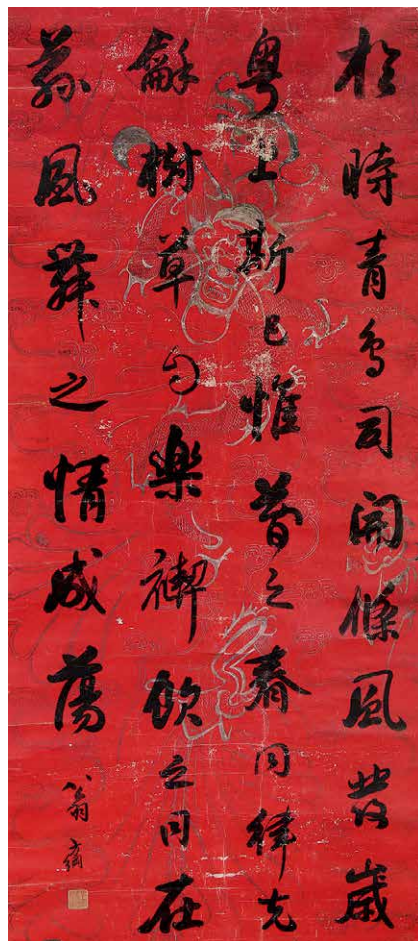 於時青鳥司開條風發歲
粤上斯巳惟暮之春同律克
龢樹草自樂禊飲之日在
茲風舞之情咸蕩
翁